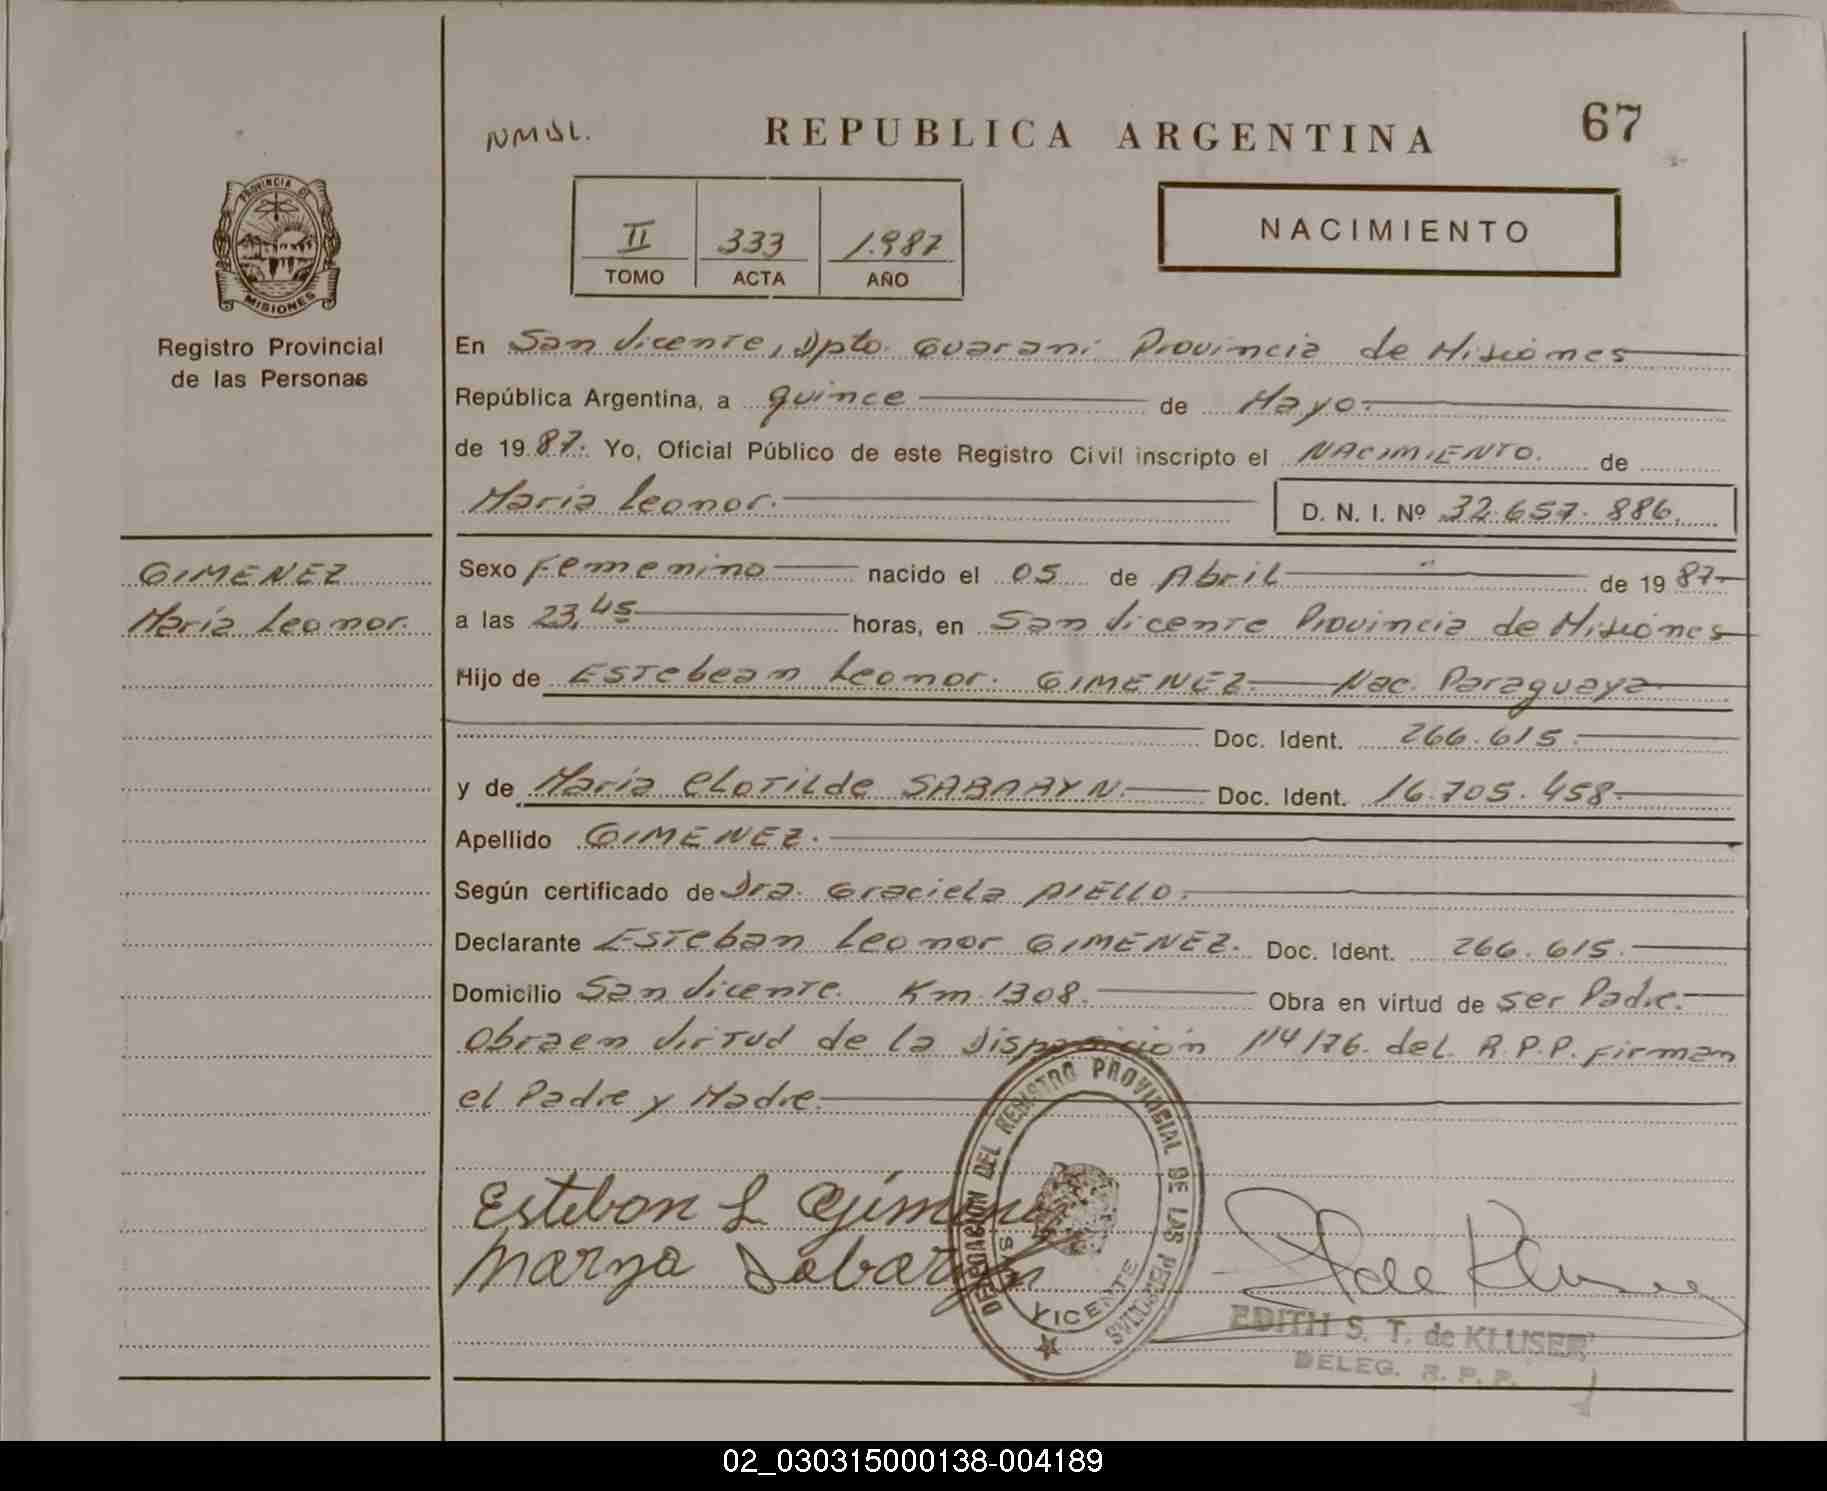 NMSL.
REPUBLICA ARGENTINA
67
PROVINCIA DE
MISIONES
Registro Provincial
de las Personas
II 333 1.987
TOMO ACTA AÑO
NACIMIENTO
En San Vicente, Dpto. Guaraní Provincia de Misiones
República Argentina, a quince de Mayo.
de 1987. Yo, Oficial Público de este Registro Civil inscripto el NACIMIENTO. de
María Leonor. D. N. I. Nº 32.657.886.
GIMENEZ
María Leonor.
Sexo Femenino nacido el 05 de Abril de 1987
a las 23,45 horas, en San Vicente Provincia de Misiones
Hijo de Estebean Leonor. GIMENEZ. Nac. Paraguaya
Doc. Ident. 266.615.
y de María Clotilde SABARYN. Doc. Ident. 16.705.458.
Apellido GIMENEZ.
Según certificado de Dra. Graciela AIELLO.
Declarante Esteban Leonor GIMENEZ. Doc. Ident. 266.615.
Domicilio San Vicente. Km. 1308. Obra en virtud de ser Padre.
Obraen Virtud de la Disposición 114/76. del R.P.P. firman
el Padre y Madre.
Esteban L Gimenez
Marya Sabaryn
DELEGACION DEL REGISTRO PROVINCIAL DE LAS PERSONAS
S. VICENTE
de Kluser
EDITH S. T. de KLUSER
DELEG. R. P. P.
02_030315000138-004189